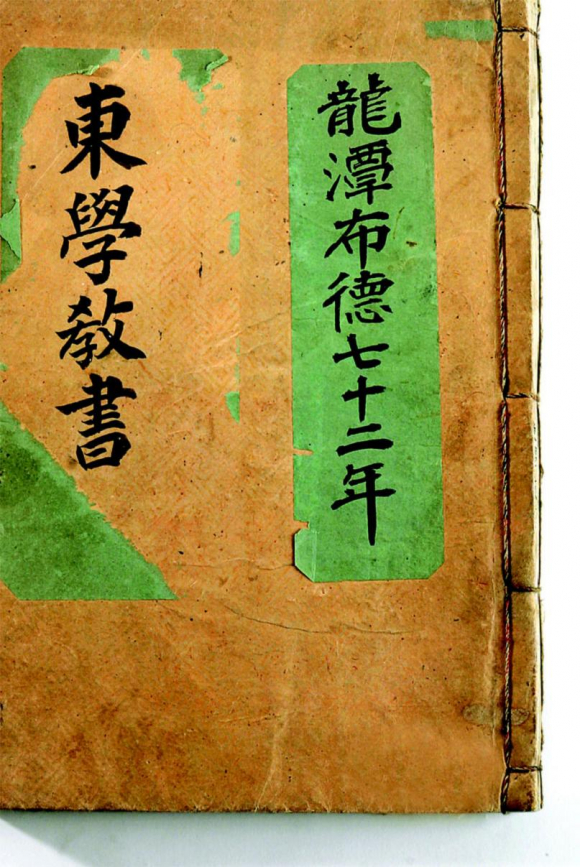 龍潭布德七十二年
東學教書